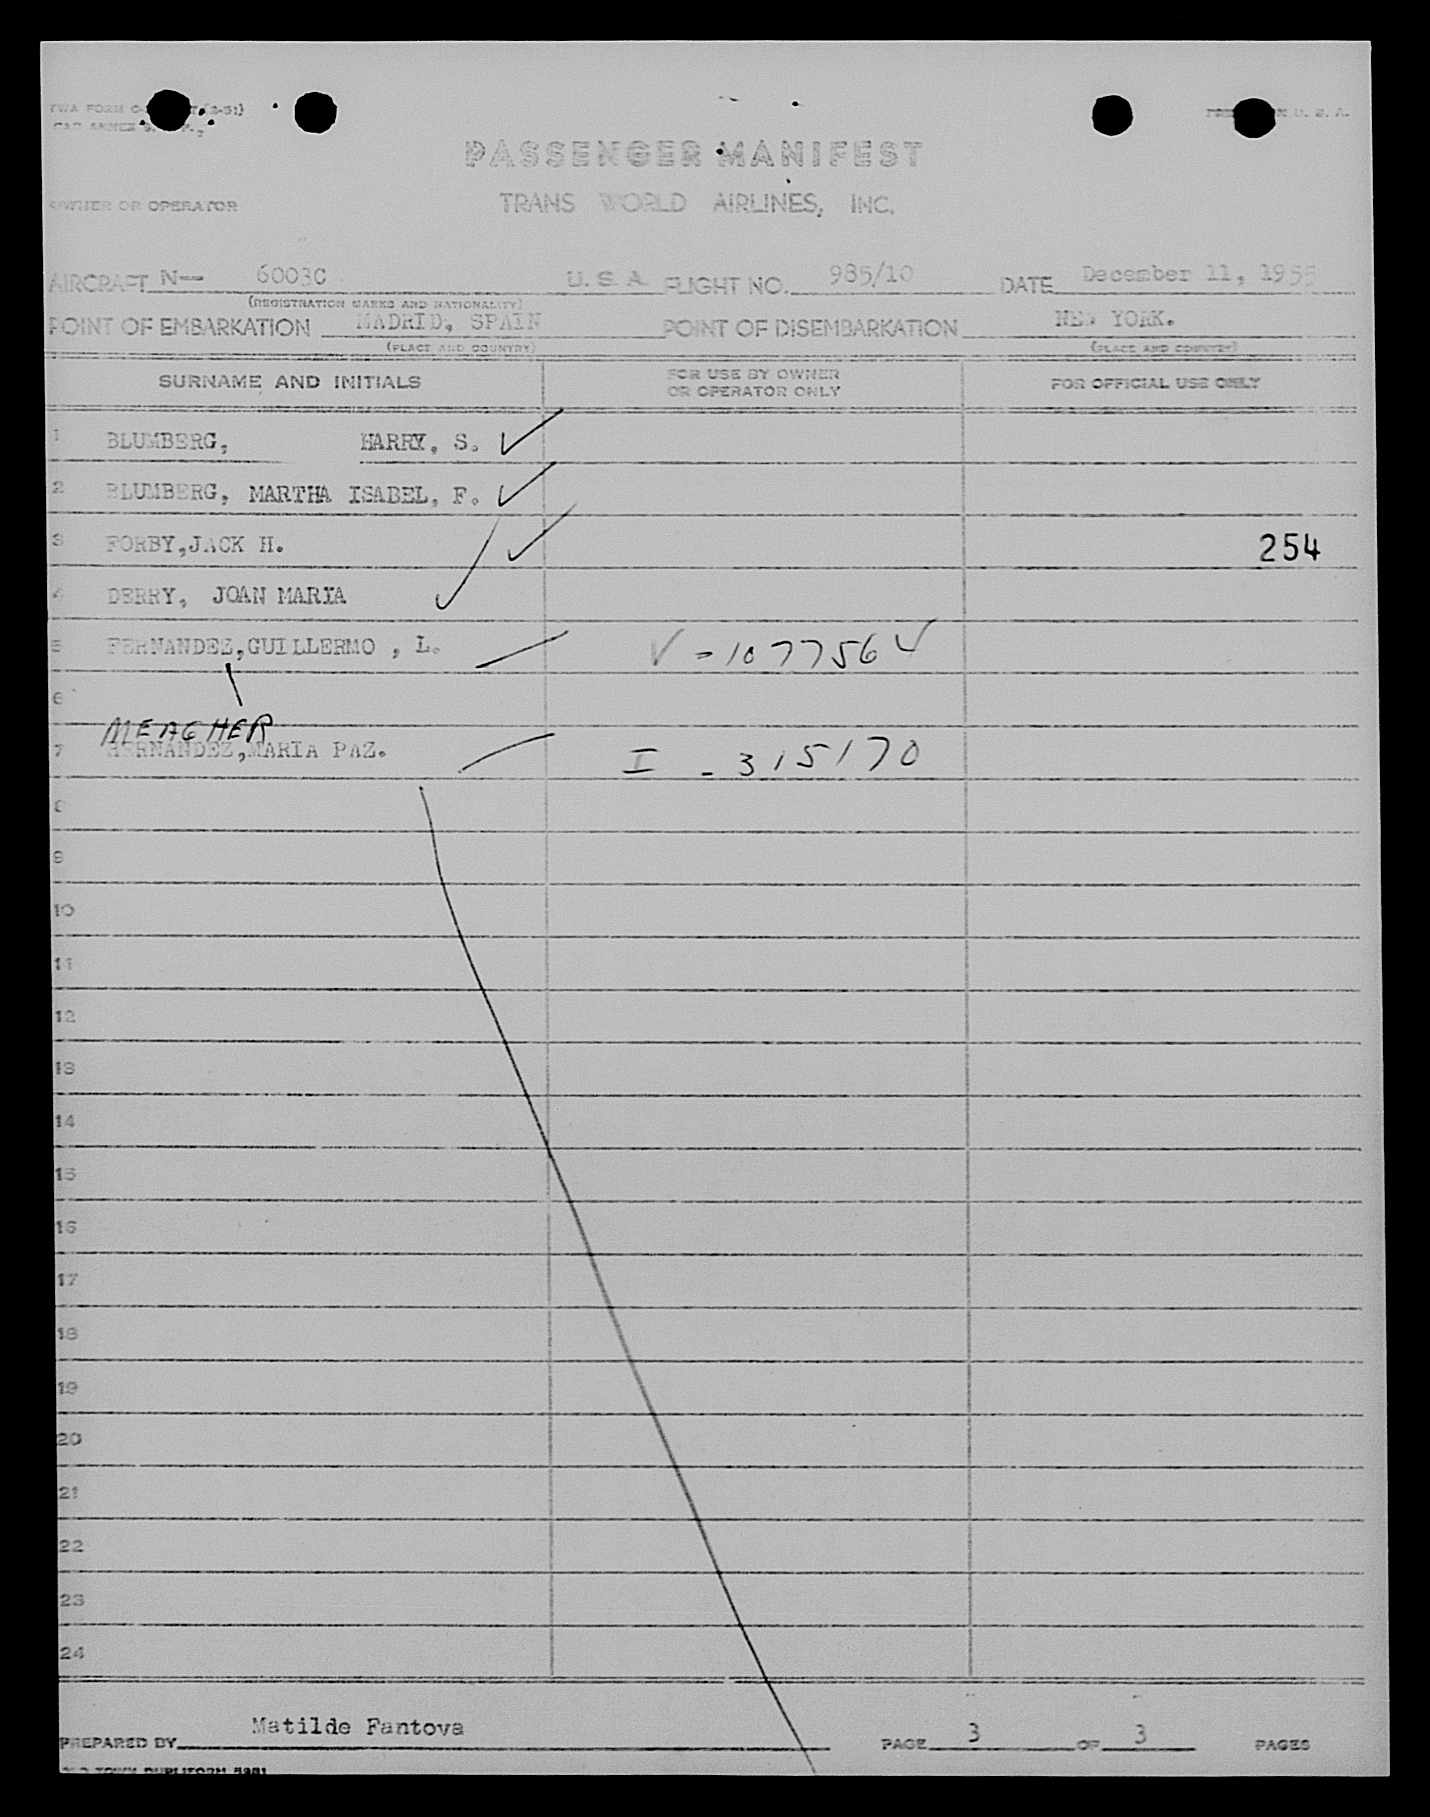 TWA FORM
PASSENGER MANIFEST
OWNER OR OPERATOR
TRANS WORLD AIRLINES, INC.
AIRCRAFT N— 6003C U. S. A. FLIGHT NO. 985/10 DATE December 11, 1955
(REGISTRATION MARKS AND NATIONALITY)
POINT OF EMBARKATION MADRID, SPAIN POINT OF DISEMBARKATION NEW YORK.
(PLACE AND COUNTRY) (PLACE AND COUNTRY)
SURNAME AND INITIALS FOR USE BY OWNER OR OPERATOR ONLY FOR OFFICIAL USE ONLY
1 BLUMBERG, HARRY, S.
2 BLUMBERG, MARTHA ISABEL, F.
3 FORBY,JACK H. 254
4 DERRY, JOAN MARIA
5 FERNANDEZ,GUILLERMO , L. V - 1077564
6
MEAGHER
7 HERNANDEZ,MARIA PAZ. I - 315170
8
9
10
11
12
13
14
15
16
17
18
19
20
21
22
23
24
PREPARED BY Matilde Fantova PAGE 3 OF 3 PAGES